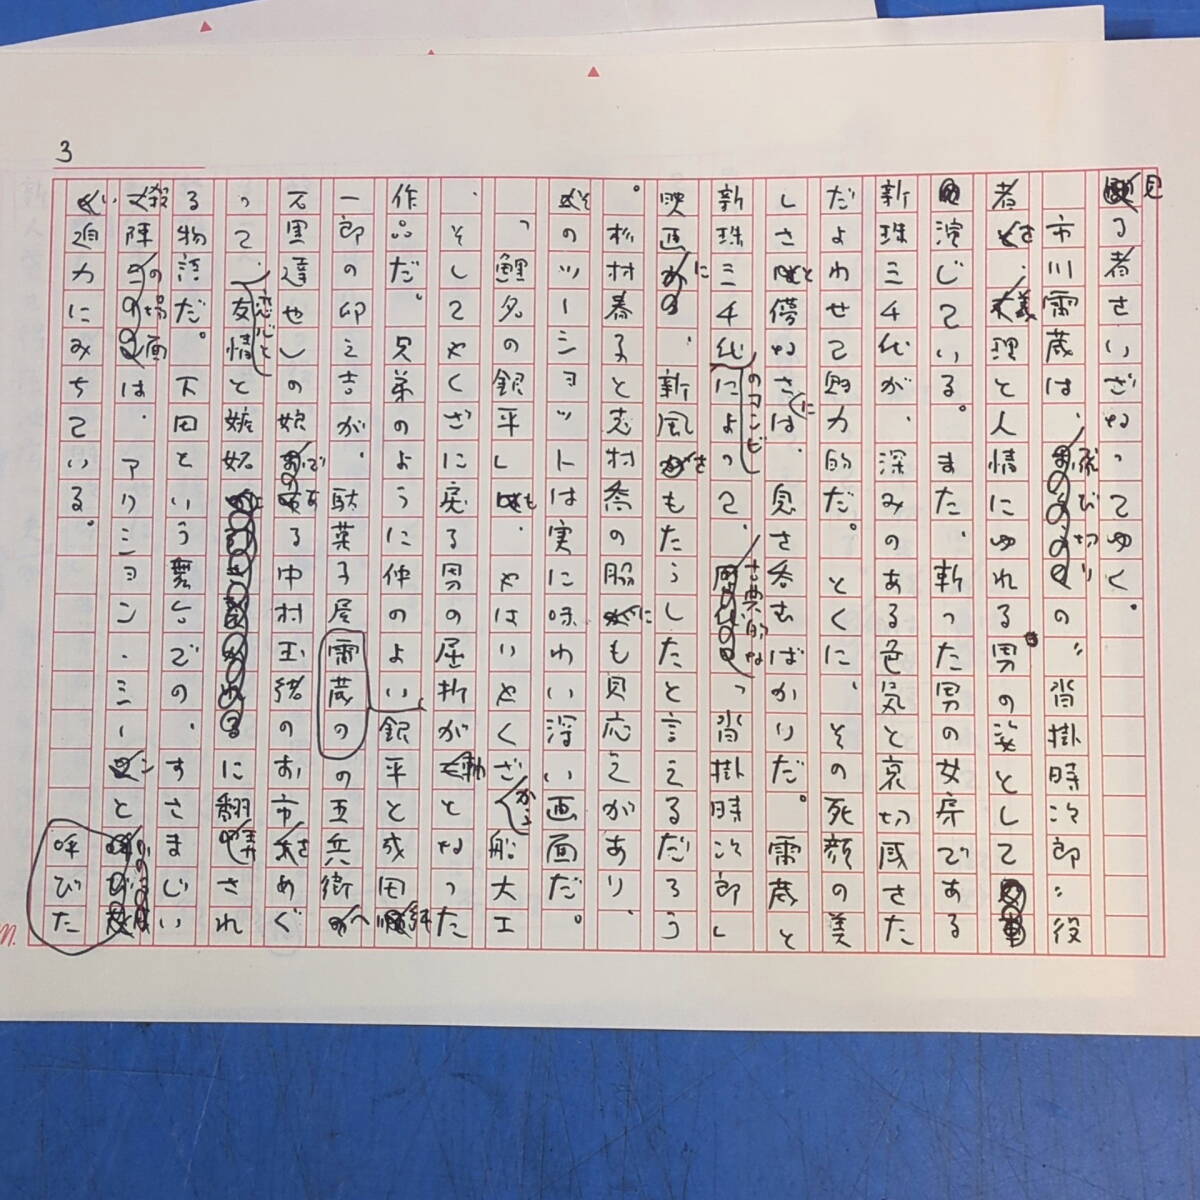 3
見る者をいざなってゆく。
市川雷蔵は、飛び切りの〝沓掛時次郎〟役
者さ、義理と人情にゆれる男の姿として
演じている。また、斬った男の女房である
新珠三千代が、深みのある色気と哀切感をた
だよわせて魅力的だ。とくに、その死顔の美
しさと儚なさには、息を呑むばかりだ。雷蔵と
新珠三千代のコンビによって、古典的な「沓掛時次郎」
映画に、新風をもたらしたと言えるだろう
。杉村春子と志村喬の脇にも見応えがあり、
そのツーショットは実に味わい深い画面だ。
「鯉名の銀平」も、やはりやくざから船大工
、そしてやくざに戻る男の屈折が動となった
作品だ。兄弟のように仲のよい雷蔵の銀平と成田純
一郎の卯之吉が、駄菓子屋の五兵衛へ
石黒達也の娘である中村玉緒のお市をめぐ
って、恋心と友情と嫉妬に翻弄され
る物語だ。下田という舞台での、すさまじい
殺陣の場面は、アクション・シーンと呼びた
い迫力にみちている。